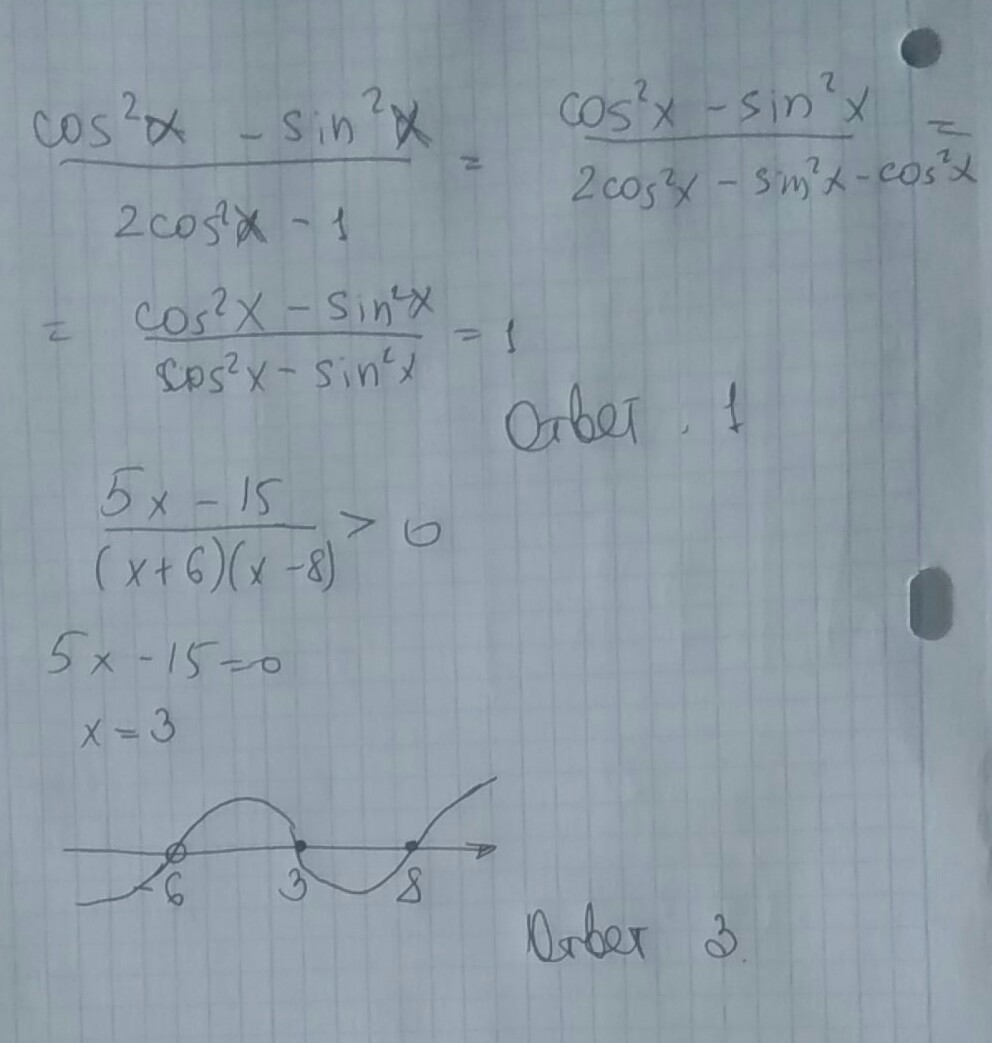 cos²x - sin²x / 2cos²x - 1 = cos²x - sin²x / 2cos²x - sin²x - cos²x =
= cos²x - sin²x / cos²x - sin²x = 1
Ответ . 1
5x - 15 / (x+6)(x-8) > 0
5x - 15 = 0
x = 3
-6 3 8
Ответ 3.